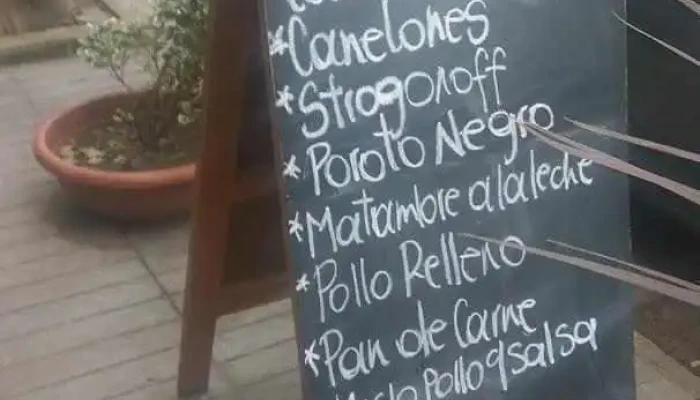 *Canelones
*Strogonoff
*Poroto Negro
*Matambre a la leche
*Pollo Relleno
*Pan de Carne
Pollo q/salsa